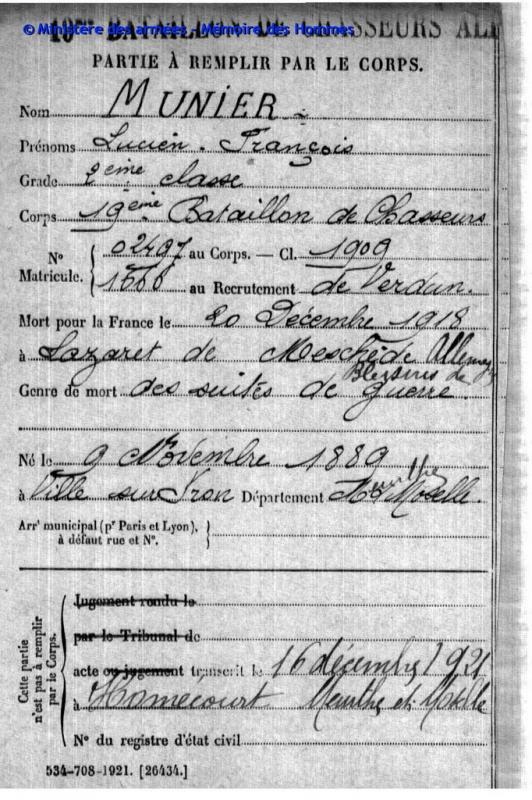 © Ministère des armées - Mémoire des Hommes
BATAILLON DE CHASSEURS
PARTIE À REMPLIR PAR LE CORPS.
Nom MUNIER
Prénoms Lucien - François
Grade 2ème classe
Corps 19ème Bataillon de Chasseurs
N° Matricule. 02497 au Corps. — Cl. 1909
au Recrutement de Verdun.
Mort pour la France le 20 Décembre 1918
à Lazaret de Meschède
Blessures de
Genre de mort des suites de guerre.
Né le 9 Novembre 1889
à Ville sur Iron Département Meurthe Moselle.
Arrt municipal (pr Paris et Lyon),
à défaut rue et N°.
Cette partie n'est pas à remplir par le Corps.
Jugement rendu le
par le Tribunal de
acte ou jugement transcrit le 16 décembre 1921
à Homécourt Meurthe et Moselle
N° du registre d'état civil
534-708-1921. [26434.]